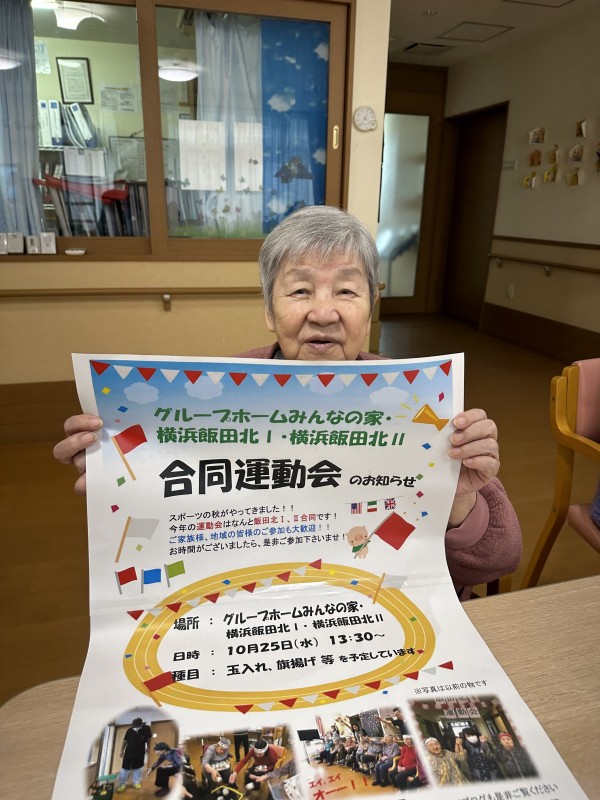 グループホームみんなの家・
横浜飯田北Ⅰ・横浜飯田北Ⅱ
合同運動会 のお知らせ
スポーツの秋がやってきました！！
今年の運動会はなんと飯田北Ⅰ、Ⅱ合同です！
ご家族様、地域の皆様のご参加も大歓迎！！
お時間がございましたら、是非ご参加下さいませ！
場所 ： グループホームみんなの家・
横浜飯田北Ⅰ・横浜飯田北Ⅱ
日時 ： 10月25日（水） 13:30～
種目 ： 玉入れ、旗揚げ 等 を予定しています
※写真は以前の物です
エイ、エイ
オー！！
も是非ご覧ください